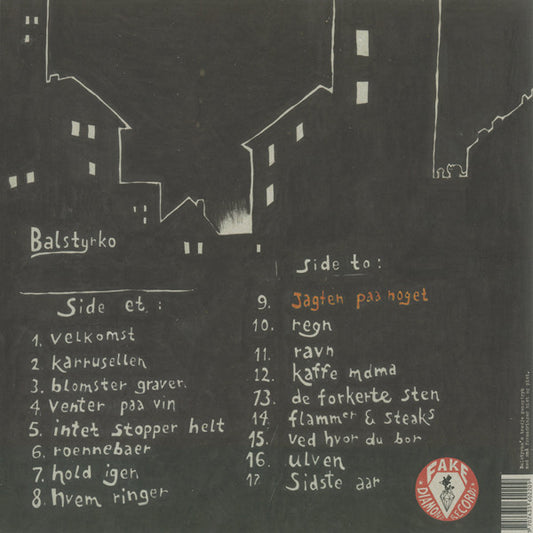 Balstyrko
Side et :
1. velkomst
2 karrusellen
3. blomster graver
4 venter paa vin
5. intet stopper helt
6. roennebaer
7. hold igen
8. hvem ringer
Side to :
9. Jagten paa noget
10. regn
11. ravn
12. kaffe mama
13. de forkerte sten
14 flammer & steaks
15. ved hvor du bor
16. ulven
17 Sidste aar
FAKE
DIAMOND
RECORDS